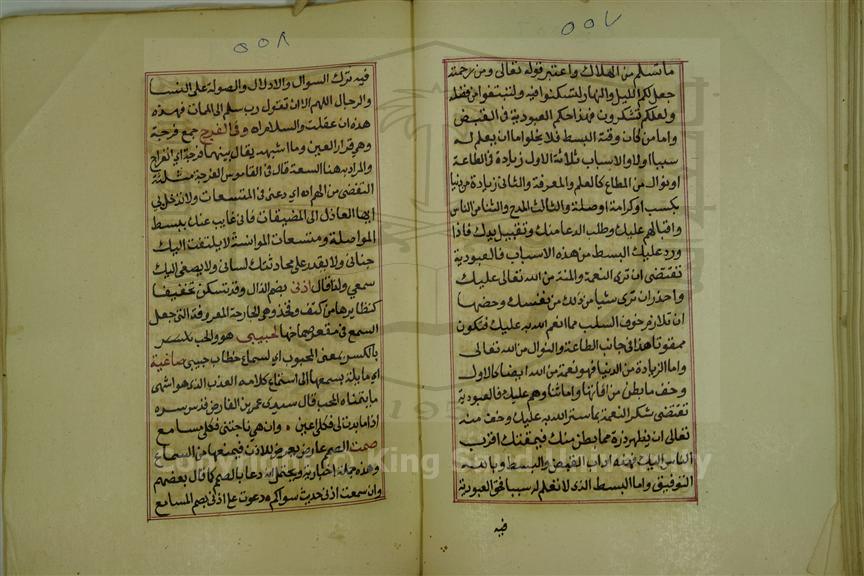 ٥٥٧
ما تسلم من الهلاك واعتبر قوله تعالى ومن رحمته
جعل لكم الليل والنهار لتسكنوا فيه ولتبتغوا من فضله
ولعلكم تشكرون فهذا حكم العبودية في القبض
واما من كان وقته البسط فلا يخلوا ما ان يعلم له
سببا اولا والاسباب ثلاثة الاول زيادة في الطاعة
او نوال من المطاع كالعلم والمعرفة والثاني زيادة من دنيا
بكسب او كرامة او صلة والثالث المدح والثنا من الناس
واقبالهم عليك وطلب الدعا منك وتقبيل يدك فاذا
ورد عليك البسط من هذه الاسباب فالعبودية
تقتضى ان ترى النعمة والمنة من الله تعالى عليك
واحذر ان ترى شئيا من ذلك من نفسك وحضها
ان تلازم خوف السلب مما انعم الله به عليك فتكون
ممقوتا هذا في جانب الطاعة والنوال من الله تعالى
واما الزيادة من الدنيا فهو نعمة من الله ايضا كالاول
وخف ما بطن من افاتها واما ثنا وهم عليك فالعبودية
تقتضى شكر النعمة بما ستر الله به عليك وخف منه
تعالى ان يظهر ذرة مما بطن منك فيمقتك اقرب
الناس اليك فهذه اداب القبض والبسط وبالله
التوفيق واما البسط الذى لا تعلم له سببا فحق العبودية
فيه
٥٥٨
فيه ترك السوال والادلال والصولة على النسا
والرجال اللهم الا ان تقول رب سلم الى الممات فهذه
هذه ان عقلت والسلام اه وفي الفرج جمع فرجة
وهو قرار العين وما اشبهه يقال بينهما فرجة اي انفراج
والمراد به هنا السعة قال في القاموس الفرجة مثلثة
التفصي من الهم اه اي دعنى في المتسعات ولا تدخل بي
ايها العاذل الى المضيقات فاني غايب عنك ببسط
المواصلة ومتسعات الموانسة لا يلتفت اليك
جناني ولا يقدر على محادثتك لساني ولا يصغى اليك
سمعي ولذا قال اذنى بضم الذال وقد تسكن تخفيفا
كنظايرها من كتف وفخذ وهي الجارحة المعروفة التي جعل
السمع في مقعر صماخها لحبيبي هو والحب
بالكسر بمعنى المحبوب اي لسماع خطاب حبيبي صاغية
اي مايلة بسمعها الى استماع كلامه العذب الذى هو اشهى
ما يتمناه المحب قال سيدى عمر بن الفارض قدس سره
اذا ما بدت لي فكلي اعين ٥ وان هي ناجتني فكلي مسامع
صمت الصمم عارض يعرض للاذن فيمنعها من السماع
وهذه جملة اخبارية ويحتمل انه دعا بالصمم كما قال بعضهم
وان سمعت اذنى حديث سواكم دعوت على اذنى بصم المسامع
Copyright © King Saud University
1957